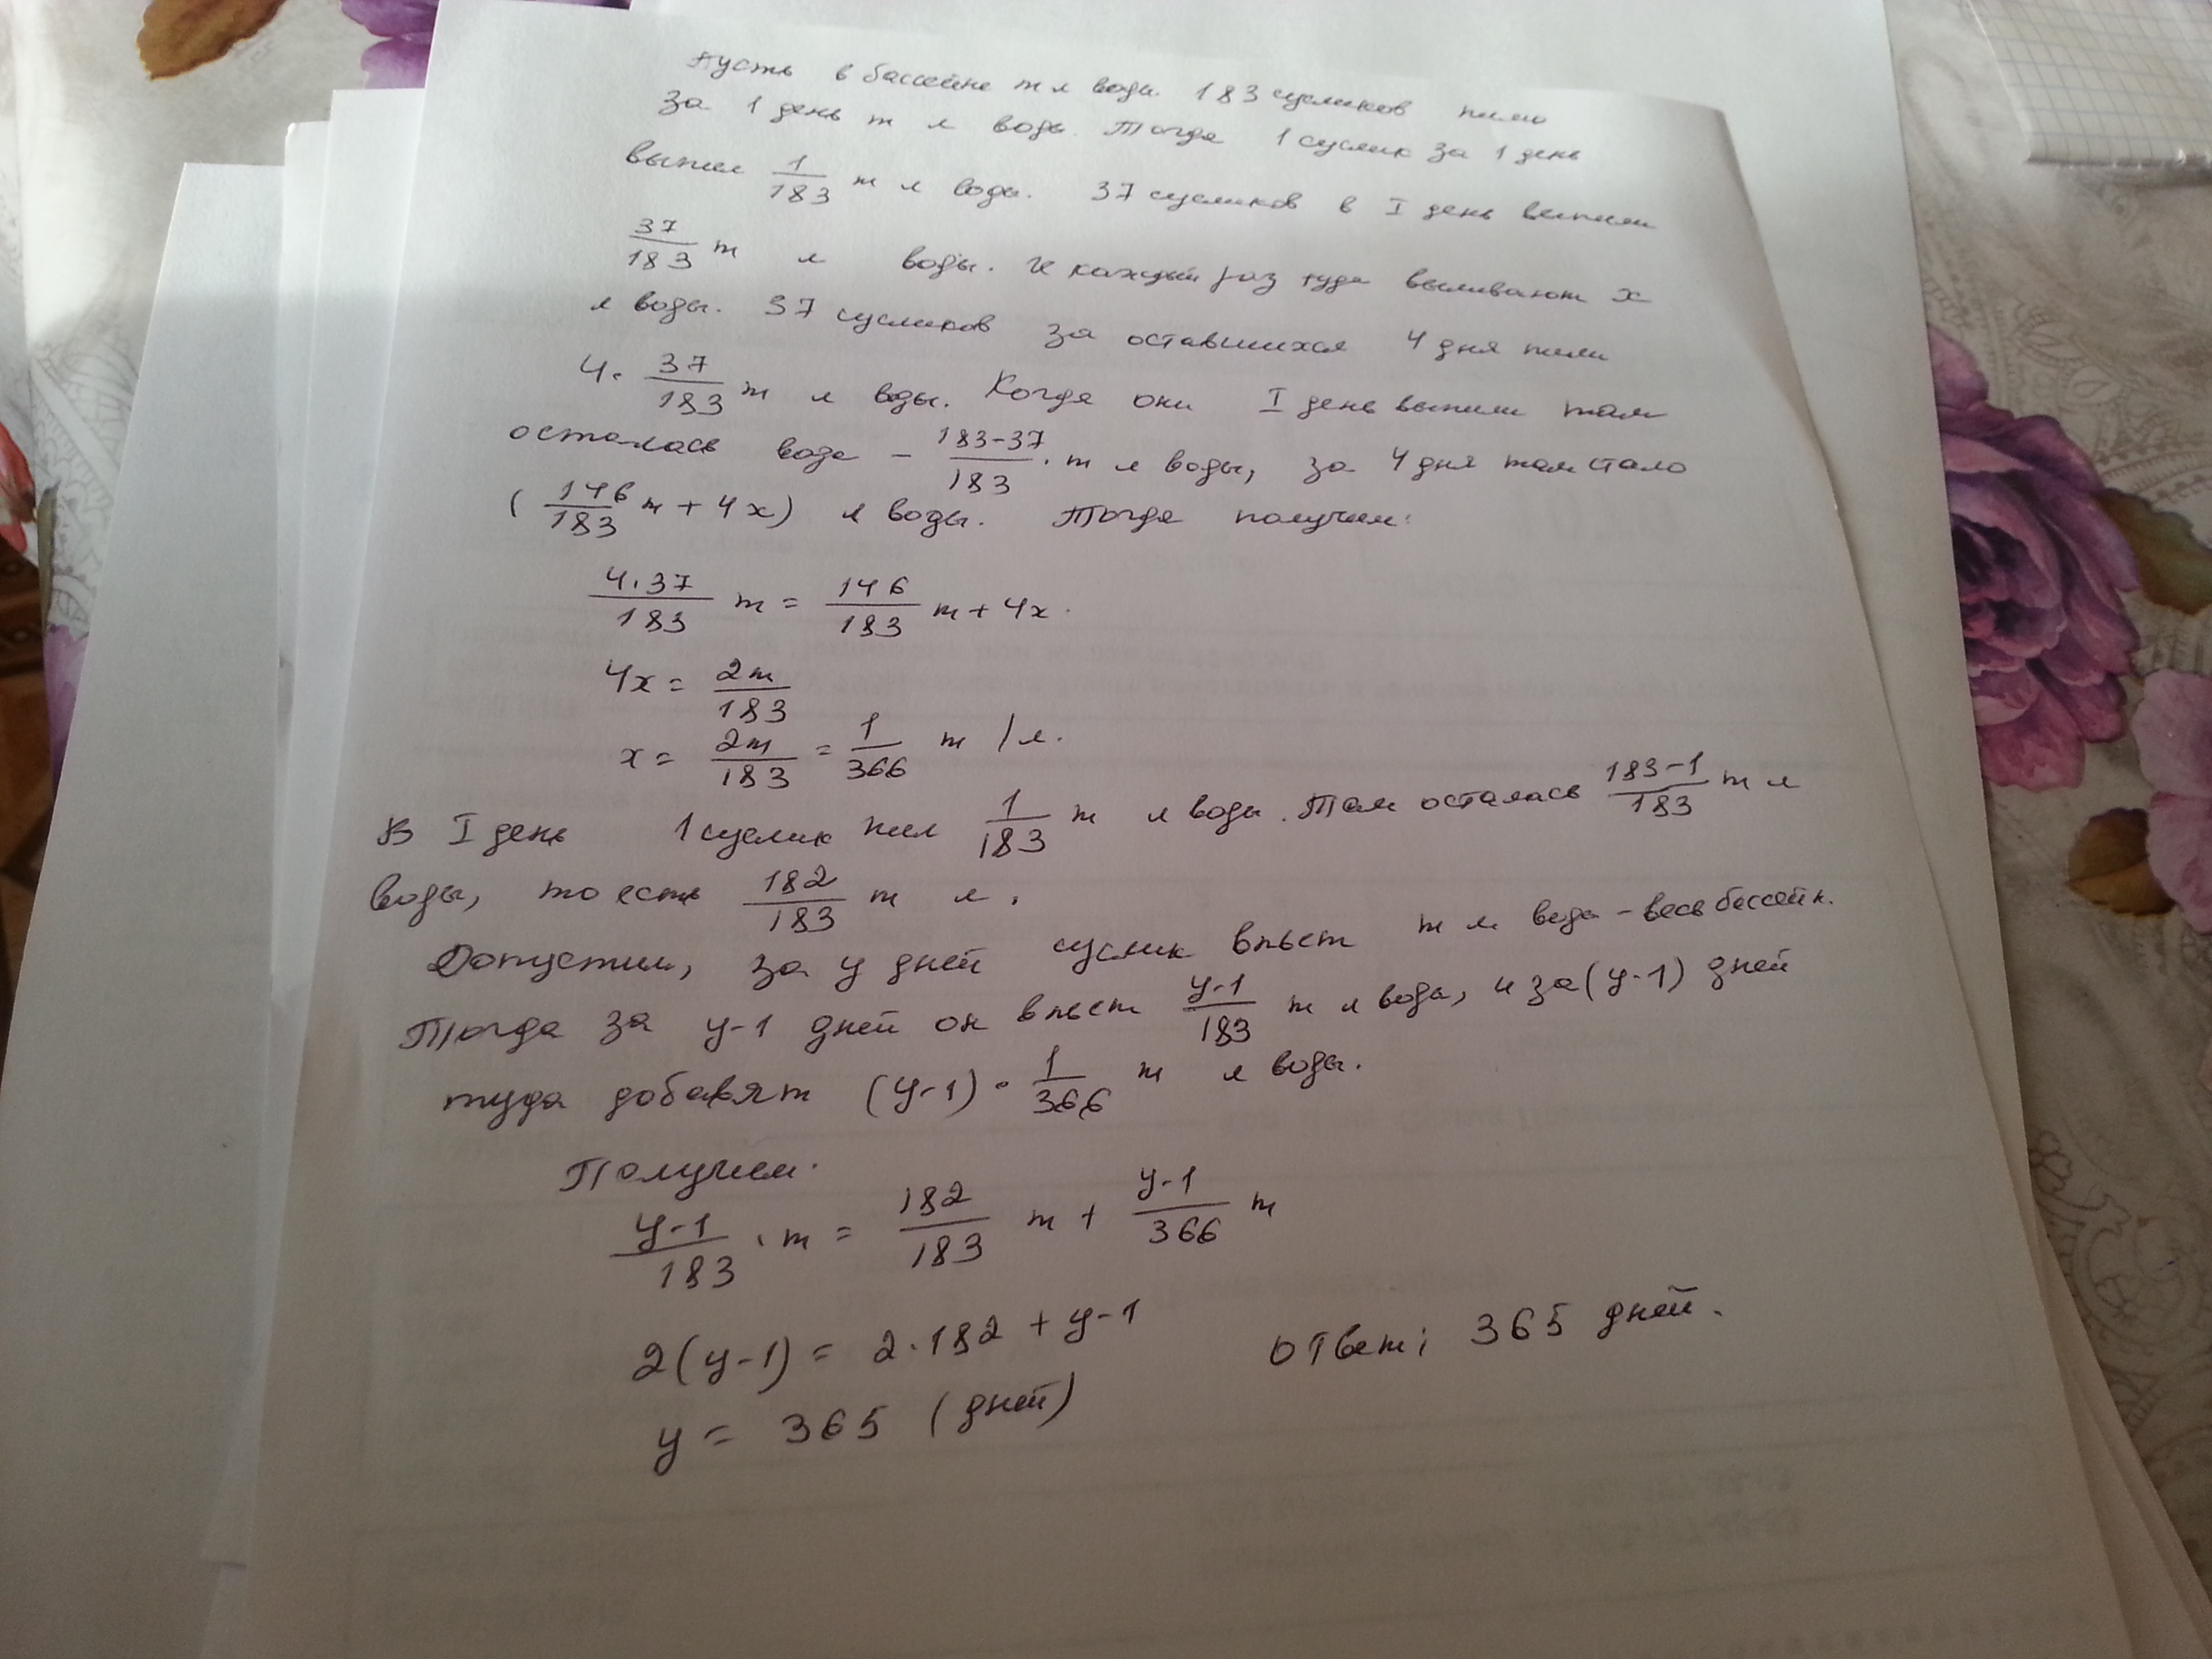 Пусть в бассейне m л воды. 183 сусликов пило
за 1 день m л воды. Тогда 1 суслик за 1 день
выпил 1/183 m л воды. 37 сусликов в I день выпили
37/183 m л воды. И каждый раз туда выливают x
л воды. 37 сусликов за оставшихся 4 дня пили
4 · 37/183 m л воды. Когда они I день выпили там
осталась вода - (183-37)/183 · m л воды, за 4 дня там стало
(146/183 m + 4x) л воды. Тогда получим:
4·37/183 m = 146/183 m + 4x.
4x = 2m/183
x = 2m/183 = 1/366 m /л.
В I день 1 суслик пил 1/183 m л воды. Там осталась (183-1)/183 m л
воды, то есть 182/183 m л.
Допустим, за y дней суслик впьет m л вода - весь бассейн.
Тогда за y-1 дней он впьет (y-1)/183 m л вода, и за (y-1) дней
туда добавят (y-1) · 1/366 m л воды.
Получим:
(y-1)/183 · m = 182/183 m + (y-1)/366 m
2(y-1) = 2·182 + y-1
y = 365 (дней)
Ответ: 365 дней.